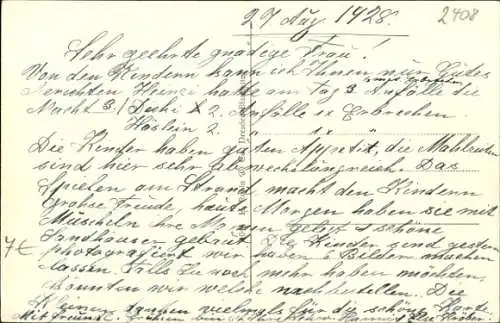 27 Aug. 1928.
2408
Sehr geehrte gnädige Frau!
Von den Kindern kann ich Ihnen nur Gutes
berichten Heinzi hatte am Tag 3 Anfälle die
Nacht 3. Anfälle Erbrechen.
Häslein 2. " " "
Die Kinder haben guten Appetit, die Mahlzeiten
sind hier sehr abwechslungsreich. Das
Spielen am Strand macht den Kindern
Grohse Freude, heute Morgen haben sie mit
Muscheln ihre Namen gelegt u schöne
Sandhäuser gebaut. Die Kinder sind gestern
photografiert wir haben 6 Bilder machen
lassen. Falls Sie noch mehr haben möchten,
könnten wir welche nachbestellen. Die
Kleinen danken vielmals für die schöne Karte
7€
Mit freundl. Grüßen